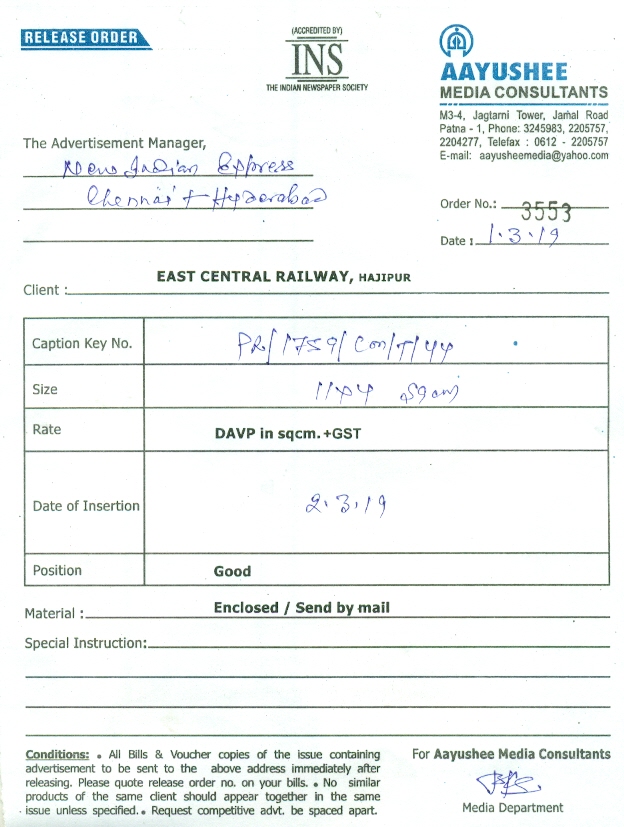 RELEASE ORDER
(ACCREDITED BY)
INS
THE INDIAN NEWSPAPER SOCIETY
AAYUSHEE
MEDIA CONSULTANTS
M3-4, Jagtarni Tower, Jamal Road
Patna - 1, Phone: 3245983, 2205757,
2204277, Telefax : 0612 - 2205757
E-mail: aayusheemedia@yahoo.com
The Advertisement Manager,
New Indian Express
Chennai + Hyderabad
Order No.: 3553
Date : 1.3.19
Client : EAST CENTRAL RAILWAY, HAJIPUR
Caption Key No. PR/1759/Con/T/44
Size 11x4 sqcm
Rate DAVP in sqcm.+GST
Date of Insertion 2.3.19
Position Good
Material : Enclosed / Send by mail
Special Instruction:
Conditions: • All Bills & Voucher copies of the issue containing
advertisement to be sent to the above address immediately after
releasing. Please quote release order no. on your bills. • No similar
products of the same client should appear together in the same
issue unless specified. • Request competitive advt. be spaced apart.
For Aayushee Media Consultants
Media Department